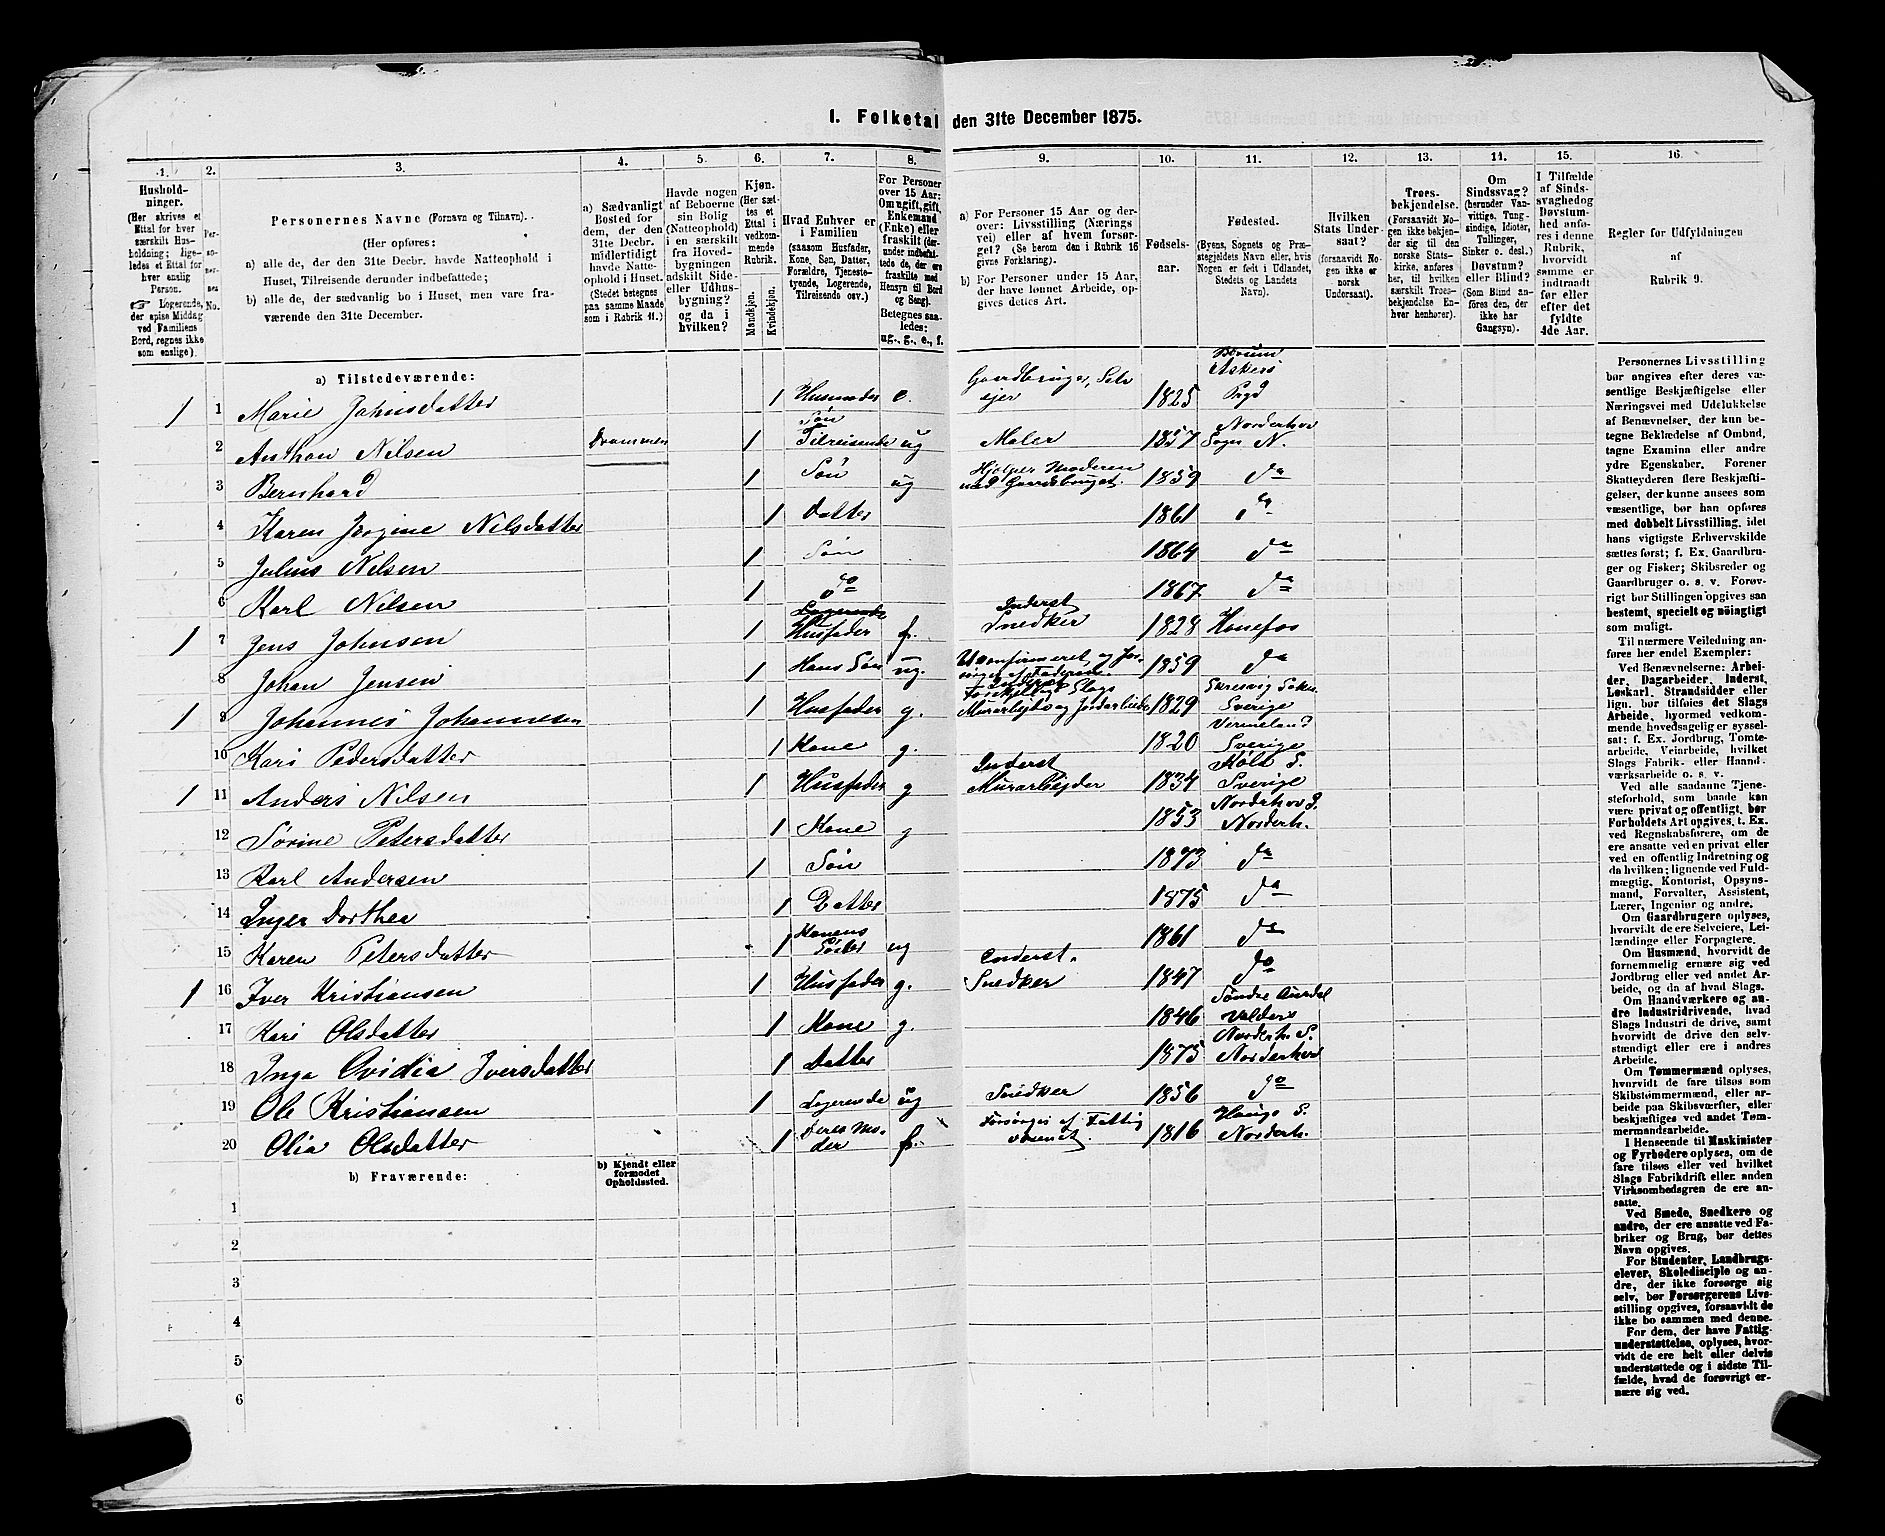 I. Folketal den 31te December 1875.
1.
Hushold-
ninger.
(Her skrives et
Ettal for hver
særskilt Hus-
holdning; lige-
ledes et Ettal for
hver enslig
Person.
☞ Logerende,
der spise Middag
ved Familiens
Bord, regnes ikke
som enslige).
2.
Per-
so-
ner-
nes
No.
3.
Personernes Navne (Fornavn og Tilnavn).
(Her opføres:
a) alle de, der den 31te Decbr. havde Natteophold i
Huset, Tilreisende derunder indbefattede;
b) alle de, der sædvanlig bo i Huset, men vare fra-
værende den 31te December.
4.
a) Sædvanligt
Bosted for
dem, der den
31te Decbr.
midlertidigt
havde Natte-
ophold i Huset.
(Stedet betegnes
paa samme Maade
som i Rubrik 11.)
5.
Havde nogen
af Beboerne
sin Bolig
(Natteophold)
i en særskilt
fra Hoved-
bygningen
adskilt Side-
eller Udhus-
bygning?
og da i
hvilken?
6.
Kjøn.
(Her sæt-
tes et
Ettal i
vedkom-
mende
Rubrik.
Mandkjøn.
Kvindekjøn.
7.
Hvad Enhver er
i Familien
(saasom Husfader,
Kone, Søn, Datter,
Forældre, Tjeneste-
tyende, Logerende,
Tilreisende osv.)
8.
For Personer
over 15 Aar:
Om ugift, gift,
Enkemand
(Enke) eller
fraskilt (der-
under indbefat-
tede de, der ere
fraskilte med
Hensyn til Bord
og Seng).
Betegnes saa-
ledes:
ug., g., e., f.
9.
a) For Personer 15 Aar og der-
over: Livsstilling (Nærings
vei) eller af hvem forsør-
get? (Se herom den i Rubrik 16
givne Forklaring).
b) For Personer under 15 Aar,
der have lønnet Arbeide, op-
gives dettes Art.
10.
Fødsels-
aar.
11.
Fødested.
(Byens, Sognets og Præ-
stegjeldets Navn eller, hvis
Nogen er født i Udlandet,
Stedets og Landets
Navn).
12.
Hvilken
Stats Under-
saat?
(forsaavidt No-
gen ikke er
norsk
Undersaat).
13.
Troes-
bekjendelse.
(Forsaavidt No-
gen ikke bekjen-
der sig til den
norske Stats-
kirke, anføres
her, til hvilken
særskilt Troes-
bekjendelse En-
hver henhører).
14.
Om
Sindssvag?
(herunder Van-
vittige, Tung-
sindige, Idioter,
Tullinger,
Sinker o. desl.)
Døvstum?
eller Blind?
(Som Blind an-
føres den, der
ikke har
Gangsyn).
15.
I Tilfælde
af Sinds-
svaghed og
Døvstum-
hed anfø-
res i denne
Rubrik,
hvorvidt
samme er
indtraadt
før eller
efter det
fyldte
4de Aar.
16.
Regler for Udfyldningen
af
Rubrik 9.
a) Tilstedeværende:
1 1 Marie Johnsdatter 1 Husmoder e. Gaardbruger, Selv ejer 1825 Bærum Askers Prgd
2 Anthon Nilsen Drammen 1 Søn Tilreisende ug Maler 1857 Norderhov Sogn N.
3 Bernhard 1 Søn ug Hjælper Moderen med Gaardsbruget. 1859 do
4 Karen Jørgine Nilsdatter 1 Datter 1861 do
5 Julius Nilsen 1 Søn 1864 do
6 Karl Nilsen 1 do 1867 do
1 7 Jens Johnsen 1 Logerende Husfader f. Inderst Snedker 1828 Hønefos
8 Johan Jensen 1 Hans Søn ug. Ukonfirmeret og for-sørget af Faderen. 1859 do
1 9 Johannes Johannesen 1 Husfader g. Inderst Forskjelligt Slags Murarbejde og Jordarbeide 1829 Sverige
10 Kari Pedersdatter 1 Kone g. 1820 Vermeland Sverige
1 11 Anders Nilsen 1 Husfader g Inderst Murarbejder 1834 Køla S. Sverige
12 Sørine Petersdatter 1 Kone g 1853 Norderhov S. Norderh.
13 Karl Andersen 1 Søn 1873 do
14 Inger Dorthea 1 Datter 1875 do
15 Karen Petersdatter 1 Konens Søster ug 1861 do
1 16 Iver Kristiansen 1 Husfader g. Inderst. Snedker 1847 do
17 Kari Olsdatter 1 Kone g. 1846 Søndre Aurdal Valders
18 Inga Ovidia Iversdatter 1 Datter 1875 Norderh. S. Norderhov
19 Ole Kristiansen 1 Logerende ug Snedker 1856 do
20 Olia Olsdatter 1 Deres Mo-der f. Forsørges af Fattig væsenet. 1816 Haugs S. Norderh.
b) Fraværende:
b) Kjendt eller
formodet
Opholdssted.
1
2
3
4
5
6
Personernes Livsstilling
bør angives efter deres væ-
sentlige Beskjæftigelse eller
Næringsvei med Udelukkelse
af Benævnelser, der kun be-
tegne Beklædelse af Ombud,
tagne Examina eller andre
ydre Egenskaber. Forener
Skatteyderen flere Beskjæfti-
gelser, der kunne ansees som
væsentlige, bør han opføres
med dobbelt Livsstilling, idet
hans vigtigste Erhvervskilde
sættes først; f. Ex. Gaardbru-
ger og Fisker; Skibsreder og
Gaardbruger o. s. v. Forøv-
rigt bør Stillingen opgives saa
bestemt, specielt og nøiagtigt
som muligt.
Til nærmere Veiledning an-
føres her endel Exempler:
Ved Benævnelserne: Arbei-
der, Dagarbeider, Inderst,
Løskarl, Strandsidder eller
lign. bør tilføies det Slags
Arbeide, hvormed vedkom-
mende hovedsagelig er syssel-
sat; f. Ex. Jordbrug, Tomte-
arbeide, Veiarbeide, hvilket
Slags Fabrik- eller Haand-
værksarbeide o. s. v.
Ved alle saadanne Tjene-
steforhold, som baade kan
være privat og offentligt, bør
Forholdets Art opgives, t. Ex.
ved Regnskabsførere, om de
ere ansatte ved en privat eller
ved en offentlig Indretning og
da hvilken; lignende ved Fuld-
mægtig, Kontorist, Opsyns-
mand, Forvalter, Assistent,
Lærer, Ingeniør og andre.
Om Gaardbrugere oplyses,
hvorvidt de ere Selveiere, Lei-
lændinge eller Forpagtere.
Om Husmænd, hvorvidt de
fornemmelig ernære sig ved
Jordbrug eller ved andet Ar-
beide, og da af hvad Slags.
Om Haandværkere og an-
dre Industridrivende, hvad
Slags Industri de drive, samt
hvorvidt de drive den selv-
stændigt eller ere i andres
Arbeide.
Om Tømmermænd oplyses,
hvorvidt de fare tilsøs som
Skibstømmermænd, eller ar-
beide paa Skibsværfter, eller
beskjæftiges ved andet Tøm-
mermandsarbeide.
I Henseende til Maskinister
og Fyrbødere oplyses, om de
fare tilsøs eller ved hvilket
Slags Fabrikdrift eller anden
Virksomhedsgren de ere an-
satte.
Ved Smede, Snedkere og
andre, der ere ansatte ved Fa-
briker og Brug, bør dettes
Navn opgives.
For Studenter, Landbrugs-
elever, Skoledisciple og an-
dre, der ikke forsørge sig
selv, bør Forsørgerens Livs-
stilling opgives, forsaavidt de
ikke bo sammen med denne.
For dem, der have Fattig-
understøttelse, oplyses, hvor-
vidt de ere helt eller delvis
understøttede og i sidste Til-
fælde, hvad de forøvrigt er-
nære sig ved.